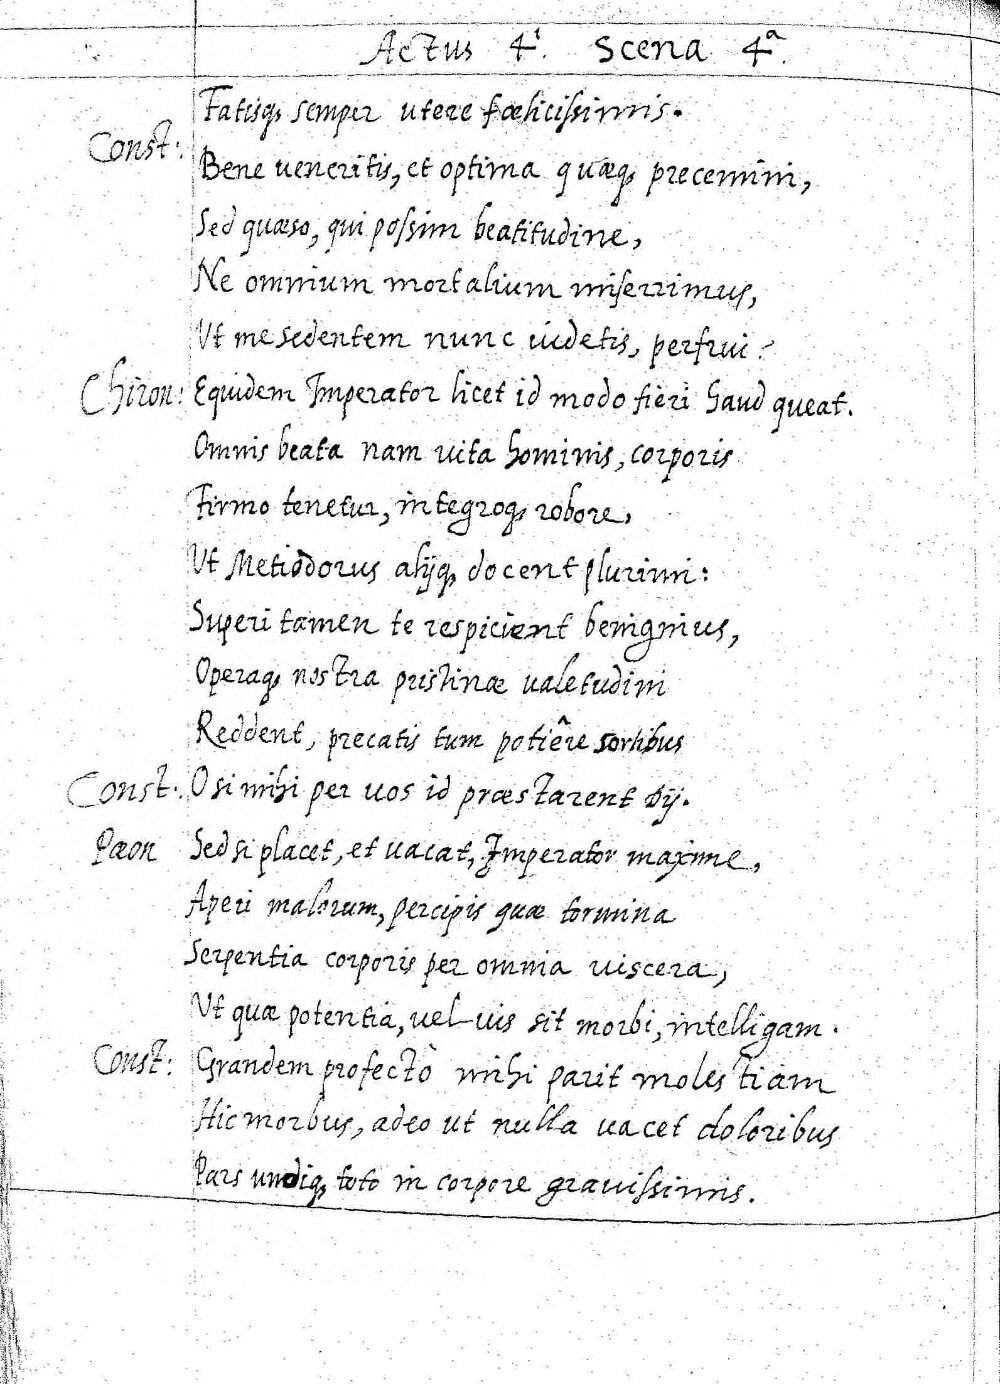 Actus 4i. Scena 4a.
Fatisq, semper utere fœlicissimis.
Const: Bene veneritis, et optima quæq, precemini,
Sed quæso, qui possim beatitudine,
Ne omnium mortalium miserrimus,
Ut me sedentem nunc uidetis, perfrui?
Chiron: Equidem Imperator licet id modo fieri haud queat.
Omnis beata nam uita hominis, corporis
Firmo tenetur, integroq, robore,
Ut Metiodorus alijq, docent plurimi:
Superi tamen te respicient benignius,
Operaq, nostra pristinæ ualetudini
Reddent, precatis tum potiêre sortibus
Const: O si mihi per uos id præstarent Dij.
Pæon Sed si placet, et uacat, Imperator maxime,
Aperi malorum, percipis quæ tormina
Serpentia corporis per omnia uiscera,
Ut quæ potentia, uel uis sit morbi, intelligam.
Const: Grandem profectò mihi parit molestiam
Hic morbus, adeo ut nulla uacet doloribus
Pars undiq, toto in corpore grauissimis.